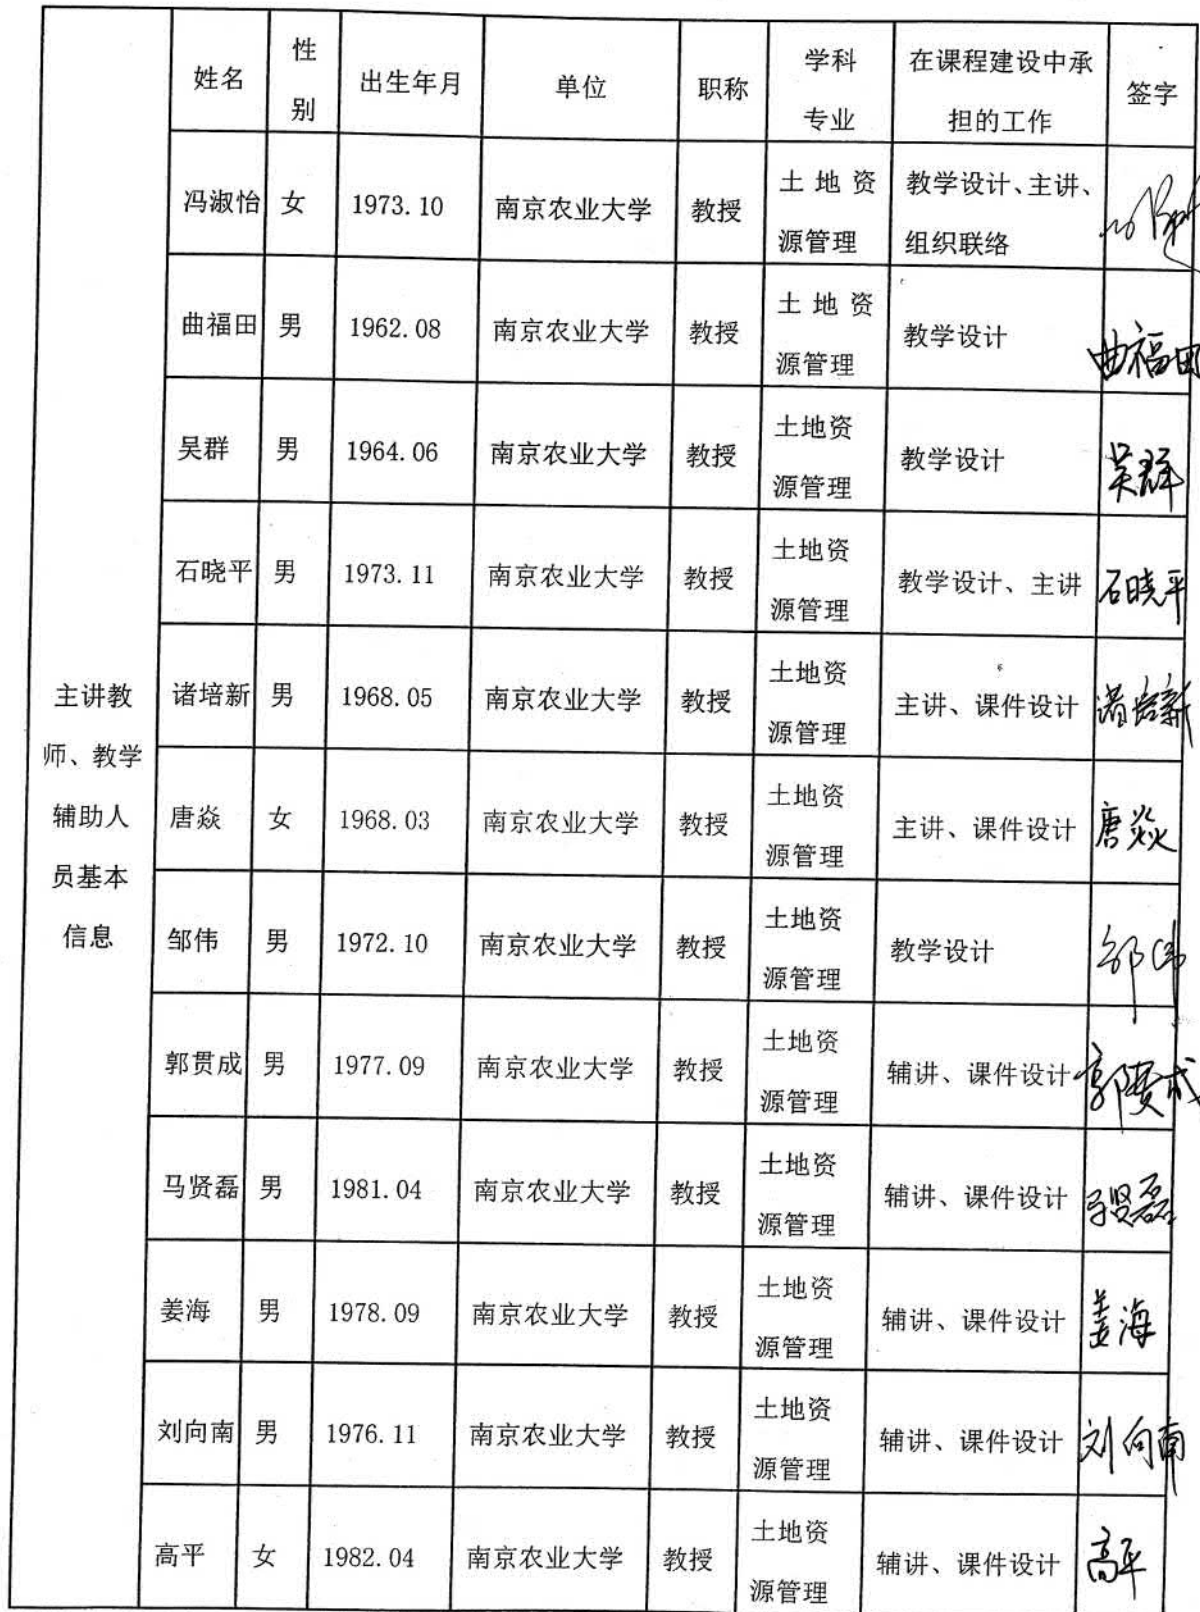 姓名 性别 出生年月 单位 职称 学科专业 在课程建设中承担的工作 签字
主讲教师、教学辅助人员基本信息
冯淑怡 女 1973.10 南京农业大学 教授 土地资源管理 教学设计、主讲、组织联络
曲福田 男 1962.08 南京农业大学 教授 土地资源管理 教学设计 曲福田
吴群 男 1964.06 南京农业大学 教授 土地资源管理 教学设计 吴群
石晓平 男 1973.11 南京农业大学 教授 土地资源管理 教学设计、主讲 石晓平
诸培新 男 1968.05 南京农业大学 教授 土地资源管理 主讲、课件设计 诸培新
唐焱 女 1968.03 南京农业大学 教授 土地资源管理 主讲、课件设计 唐焱
邹伟 男 1972.10 南京农业大学 教授 土地资源管理 教学设计 邹伟
郭贯成 男 1977.09 南京农业大学 教授 土地资源管理 辅讲、课件设计 郭贯成
马贤磊 男 1981.04 南京农业大学 教授 土地资源管理 辅讲、课件设计 马贤磊
姜海 男 1978.09 南京农业大学 教授 土地资源管理 辅讲、课件设计 姜海
刘向南 男 1976.11 南京农业大学 教授 土地资源管理 辅讲、课件设计 刘向南
高平 女 1982.04 南京农业大学 教授 土地资源管理 辅讲、课件设计 高平